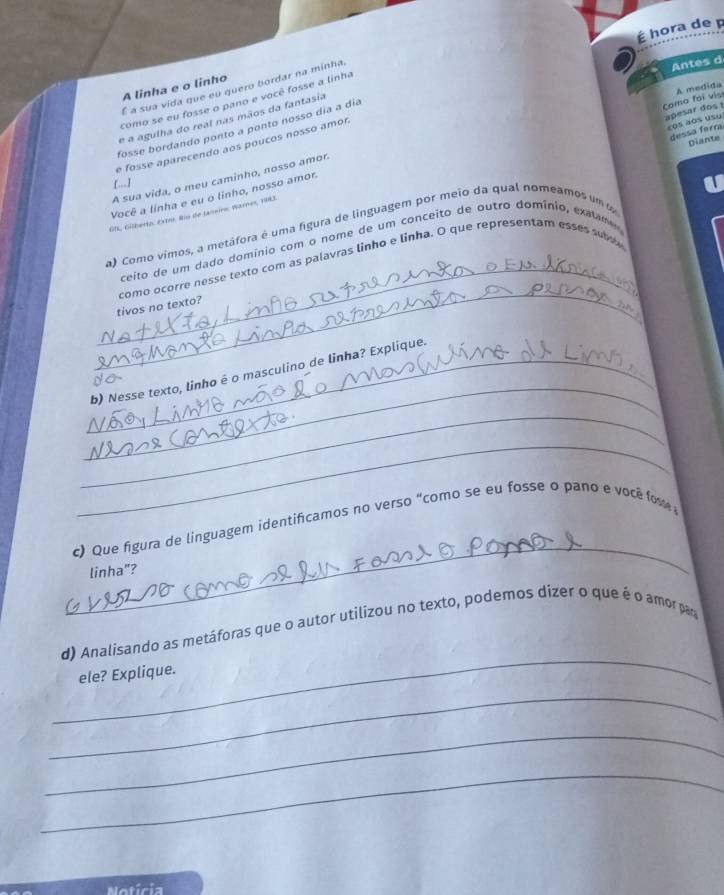 É hora de p
Antes d
A medida
Como foi vis
apesar dos
cos aos usu
dessa ferra
Diante
A linha e o linho
É a sua vida que eu quero bordar na minha,
como se eu fosse o pano e você fosse a linha
e a agulha do real nas mãos da fantasia
fosse bordando ponto a ponto nosso dia a dia
e fosse aparecendo aos poucos nosso amor.
[...]
A sua vida, o meu caminho, nosso amor.
Você a linha e eu o linho, nosso amor.
GIL, Gilberto. Extra. Rio de Janeiro: Warner, 1983.
a) Como vimos, a metáfora é uma figura de linguagem por meio da qual nomeamos um
ceito de um dado domínio com o nome de um conceito de outro domínio, exatamen
como ocorre nesse texto com as palavras linho e linha. O que representam esses substan
tivos no texto?
No texto, Linho representa o Eu
Linha representa a
b) Nesse texto, linho é o masculino de linha? Explique.
Não, Linho não é o masculino de Linha
Nesse contexto.
c) Que figura de linguagem identificamos no verso "como se eu fosse o pano e você fosse a
linha"?
como se eu fosse o pano e
d) Analisando as metáforas que o autor utilizou no texto, podemos dizer o que é o amor para
ele? Explique.
Notícia